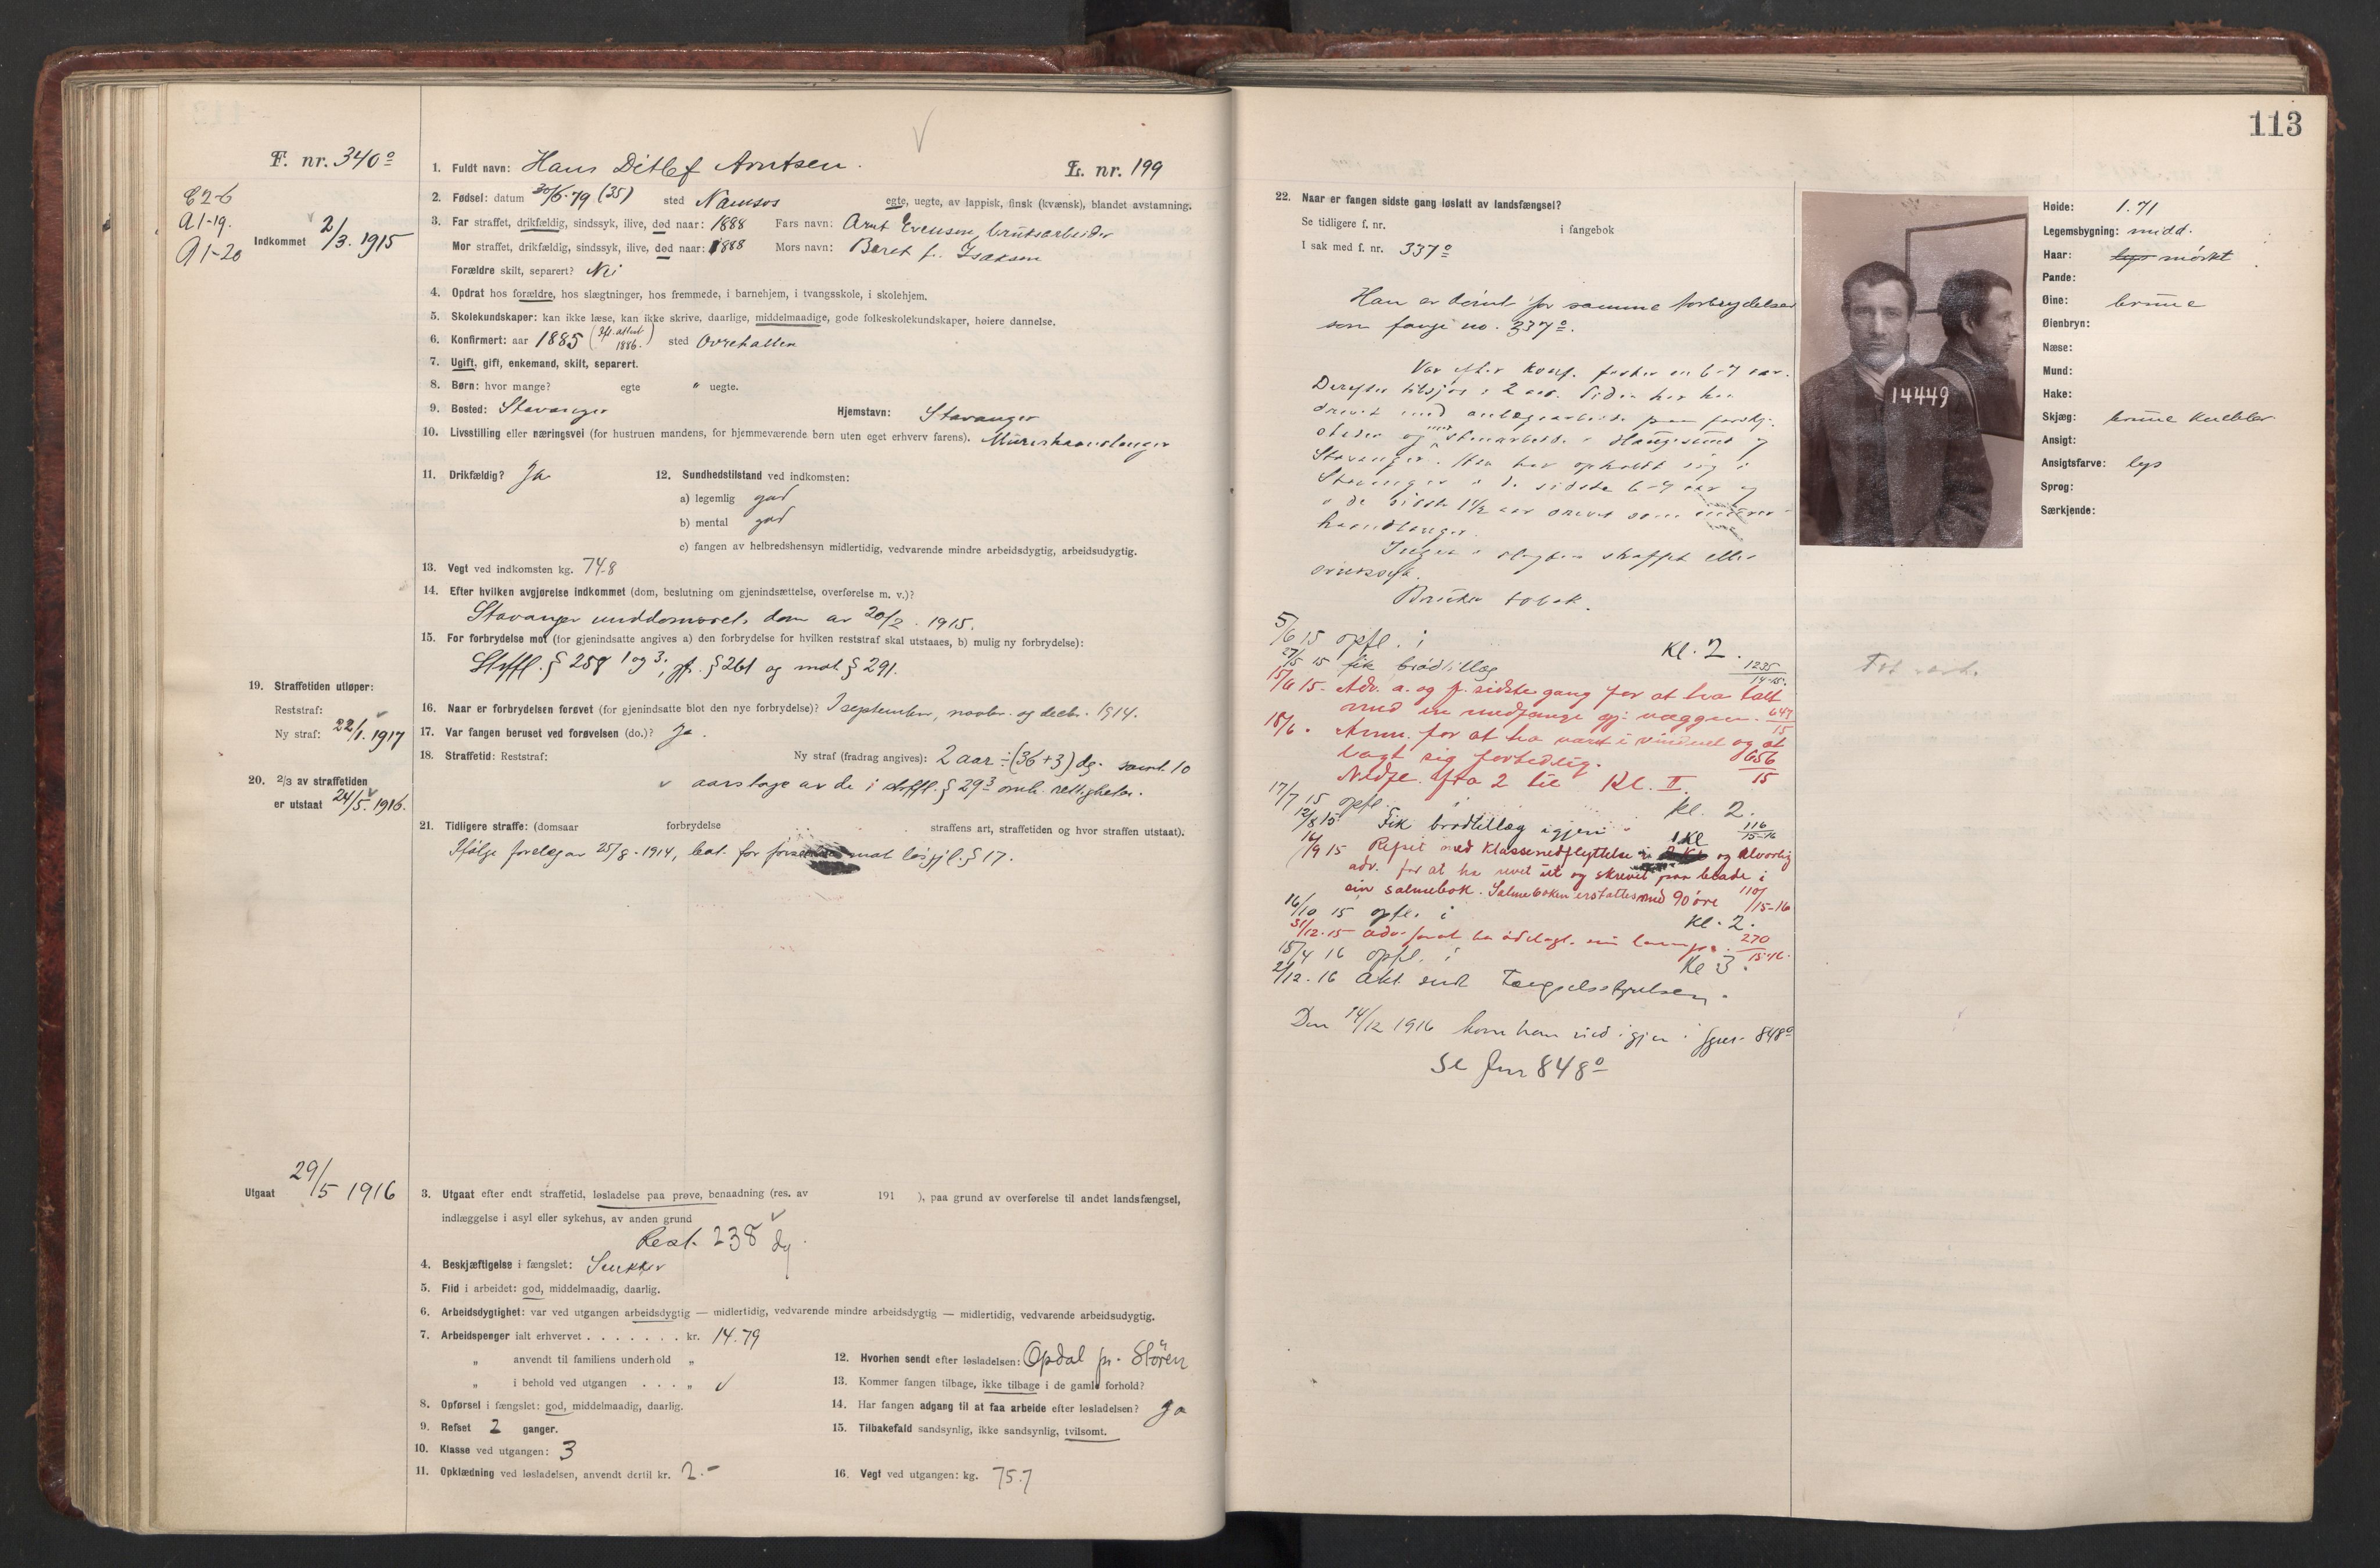 113
F. nr. 340º
1. Fuldt navn: Hans Ditlef Arntsen.
L. nr. 199
E 2-6
A 1-19.
A 1-20
Indkommet 2/3. 1915
2. Fødsel: datum 30/6-79 (35) sted Namsos egte, uegte, av lappisk, finsk (kvænsk), blandet avstamning.
3. Far straffet, drikfældig, sindssyk, ilive, død naar: 1888 Fars navn: Arnt Evensen, bruksarbeider
Mor straffet, drikfældig, sindssyk, ilive, død naar: 1888 Mors navn: Beret f. Isaksen
Forældre skilt, separert? Nei
4. Opdrat hos forældre, hos slægtninger, hos fremmede, i barnehjem, i tvangsskole, i skolehjem.
5. Skolekundskaper: kan ikke læse, kan ikke skrive, daarlige, middelmaadige, gode folkeskolekundskaper, høiere dannelse.
6. Konfirmert: aar 1885 (Ifl. attest 1886.) sted Overhallen
7. Ugift, gift, enkemand, skilt, separert.
8. Børn: hvor mange? egte " uegte.
9. Bosted: Stavanger Hjemstavn: Stavanger
10. Livsstilling eller næringsvei (for hustruen mandens, for hjemmeværende børn uten eget erhverv farens). Murerhaandlanger
11. Drikfældig? Ja
12. Sundhedstilstand ved indkomsten:
a) legemlig god
b) mental god
c) fangen av helbredshensyn midlertidig, vedvarende mindre arbeidsdygtig, arbeidsudygtig.
13. Vegt ved indkomsten kg. 74.8
14. Efter hvilken avgjørelse indkommet (dom, beslutning om gjenindsættelse, overførelse m. v.)?
Stavanger meddomsrets dom av 20/2. 1915.
15. For forbrydelse mot (for gjenindsatte angives a) den forbrydelse for hvilken reststraf skal utstaaes, b) mulig ny forbrydelse):
Strfl. § 258 1 og 3, jfr. § 261 og mot § 291.
19. Straffetiden utløper:
Reststraf:
Ny straf: 22/1. 1917
16. Naar er forbrydelsen forøvet (for gjenindsatte blot den nye forbrydelse)? I september, novbr. og decbr. 1914.
17. Var fangen beruset ved forøvelsen (do.)? Ja.
18. Straffetid: Reststraf: Ny straf (fradrag angives): 2 aar ÷ (36+3) dg. samt 10
aars tap av de i strffl. § 29 3 omh. rettigheter.
20. 2/3 av straffetiden
er utstaat 24/5. 1916.
21. Tidligere straffe: (domsaar forbrydelse straffens art, straffetiden og hvor straffen utstaat).
Ifølge forelæg av 25/8-1914, bøt. for mot løsgjl. § 17.
Utgaat 29/5 1916
3. Utgaat efter endt straffetid, løsladelse paa prøve, benaadning (res. av 191 ), paa grund av overførelse til andet landsfængsel,
indlæggelse i asyl eller sykehus, av anden grund
Rest. 238 dg.
4. Beskjæftigelse i fængslet: Snekker
5. Flid i arbeidet: god, middelmaadig, daarlig.
6. Arbeidsdygtighet: var ved utgangen arbeidsdygtig — midlertidig, vedvarende mindre arbeidsdygtig — midlertidig, vedvarende arbeidsudygtig.
7. Arbeidspenger ialt erhvervet . . . . . . . kr. 14.79
" anvendt til familiens underhold "
" i behold ved utgangen . . . "
8. Opførsel i fængslet: god, middelmaadig, daarlig.
9. Refset 2 ganger.
10. Klasse ved utgangen: 3
11. Opklædning ved løsladelsen, anvendt dertil kr. 2.-
12. Hvorhen sendt efter løsladelsen: Opdal pr. Støren
13. Kommer fangen tilbage, ikke tilbage i de gamle forhold?
14. Har fangen adgang til at faa arbeide efter løsladelsen? Ja
15. Tilbakefald sandsynlig, ikke sandsynlig, tvilsomt.
16. Vegt ved utgangen: kg. 75.7
22. Naar er fangen sidste gang løslatt av landsfængsel?
Se tidligere f. nr. i fangebok
I sak med f. nr. 337º
Han er dømt for samme forbrydelser
som fange no. 337º.
Var efter konf. fisker en 6-7 aar.
Derefter tilsjøs i 2 aar. Siden har han
drevet med anlægsarbeide paa forskj.
steder og med stenarbeide i Haugesund og
Stavanger. Han har opholdt sig i
Stavanger i de sidste 6-7 aar og
i de sidste 1½ aar drevet som murer-
haandlanger.
Ingen i slegten straffet eller
sindssyk.
Bruker tobak.
5/6 15 opfl. i Kl. 2.
27/5 15 fik brødtillæg 1235/14-15.
15/6 15. Adv. a. og f. sidste gang for at ha talt
med en medfange gj. væggen. 647/15
18/6. Anm. for at ha været i vinduet og at
lagt sig fortidlig. 656/15
Nedfl. fra 2 til Kl. I.
17/7 15 opfl. i Kl. 2.
12/8 15. Fik brødtillæg igjen. 116/15-16
16/9 15 Refset med klassenedflyttelse til 1 Kl og alvorlig
adv. for at ha revet ut og skrevet paa blade i
sin salmebok. Salmeboken erstattes med 90 øre 110/15-16
16/10 15 opfl. i Kl. 2.
31/12.15 adv. for at ha ødelagt sin lampe. 270/15-16.
15/4 16 opfl. i Kl 3.
2/12.16 Akt. sendt Fængselsstyrelsen.
Den 14/12 1916 kom han ind igjen i fgnr. 848º
Se fnr 848º
14449
Høide: 1.71
Legemsbygning: midd.
Haar: lys mørkt
Pande:
Øine: brune
Øienbryn:
Næse:
Mund:
Hake:
Skjæg: brune knebler
Ansigt:
Ansigtsfarve: lys
Sprog:
Særkjende: